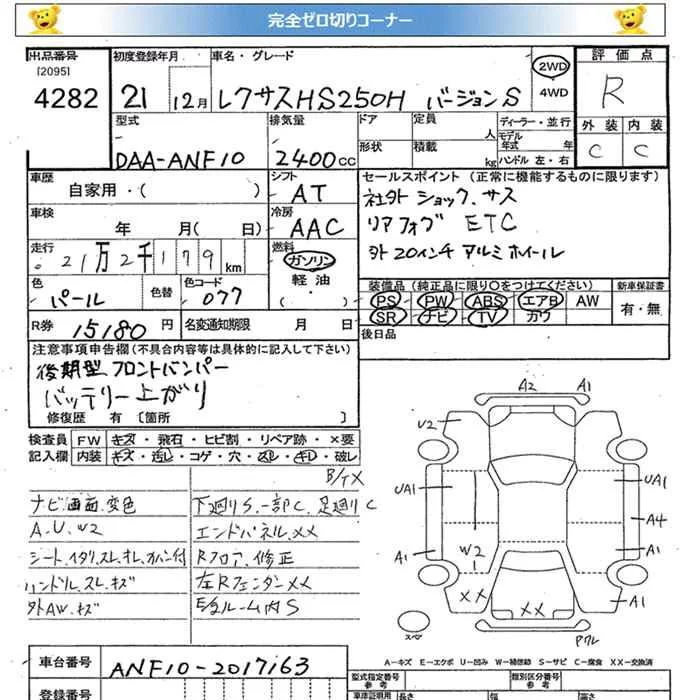 完全ゼロ切りコーナー
出品番号
[2095]
4282
初度登録年月
21 12月
車名・グレード
レクサスHS250H バージョンS
2WD
4WD
評価点
R
外装 内装
C C
型式
DAA-ANF10
排気量
2400cc
ドア
形状
定員
人
積載
kg
ディーラー・並行
モデル年式 年
ハンドル 左・右
車歴
自家用・( )
シフト
AT
セールスポイント (正常に機能するものに限ります)
社外 ショック、サス
リアフォグ ETC
外20インチ アルミホイール
車検
年 月( 日)
冷房
AAC
走行
21万2千179km
燃料
ガソリン
軽油
( )
色
パール
色替
色コード
077
装備品 (純正品に限り○をつけてください)
PS PW ABS エアB AW
SR ナビ TV カワ
新車保証書
有・無
R券 15180円
名変通知期限 月 日
後日品
注意事項申告欄 (不具合内容等は具体的に記入して下さい)
後期型 フロントバンパー
バッテリー上がり
修復歴 有 〔箇所 〕
検査員
記入欄
FW キズ・飛石・ヒビ割・リペア跡・×要
内装 キズ・汚レ・コゲ・穴・スレ・キレ・破レ
ナビ画面、変色
A.U.W2
ハンドル、スレ、キズ
外AW、キズ
下廻りS、一部C、足廻りC
エンドパネル、XX
Rフロア、修正
左RフェンダーXX
A2 A1
U2
UA1 UA1
A4
A1 W2 A1
XX XX A1
スペア
A-キズ E-エクボ U-凹み W-補修跡 S-サビ C-腐食 XX-交換済
車台番号
ANF10-2017163
登録番号
型式指定番号
参考
類別区分番号
参考
車庫証明用
参考
長さ 幅 高さ